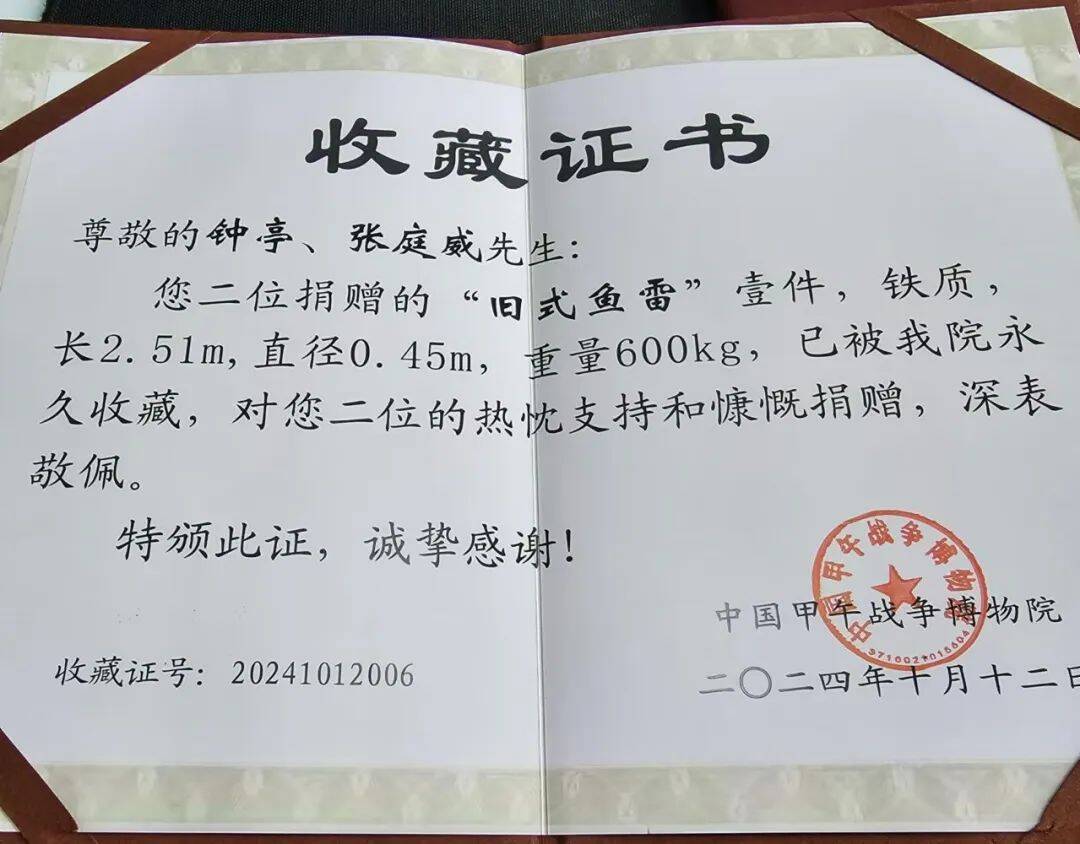 收藏证书
尊敬的钟亭、张庭威先生:
您二位捐赠的“旧式鱼雷”壹件,铁质,
长2.51m,直径0.45m,重量600kg,已被我院永
久收藏,对您二位的热忱支持和慷慨捐赠,深表
敬佩。
特颁此证,诚挚感谢!
中国甲午战争博物院
中国甲午战争博物院
收藏证号:20241012006
二〇二四年十月十二日